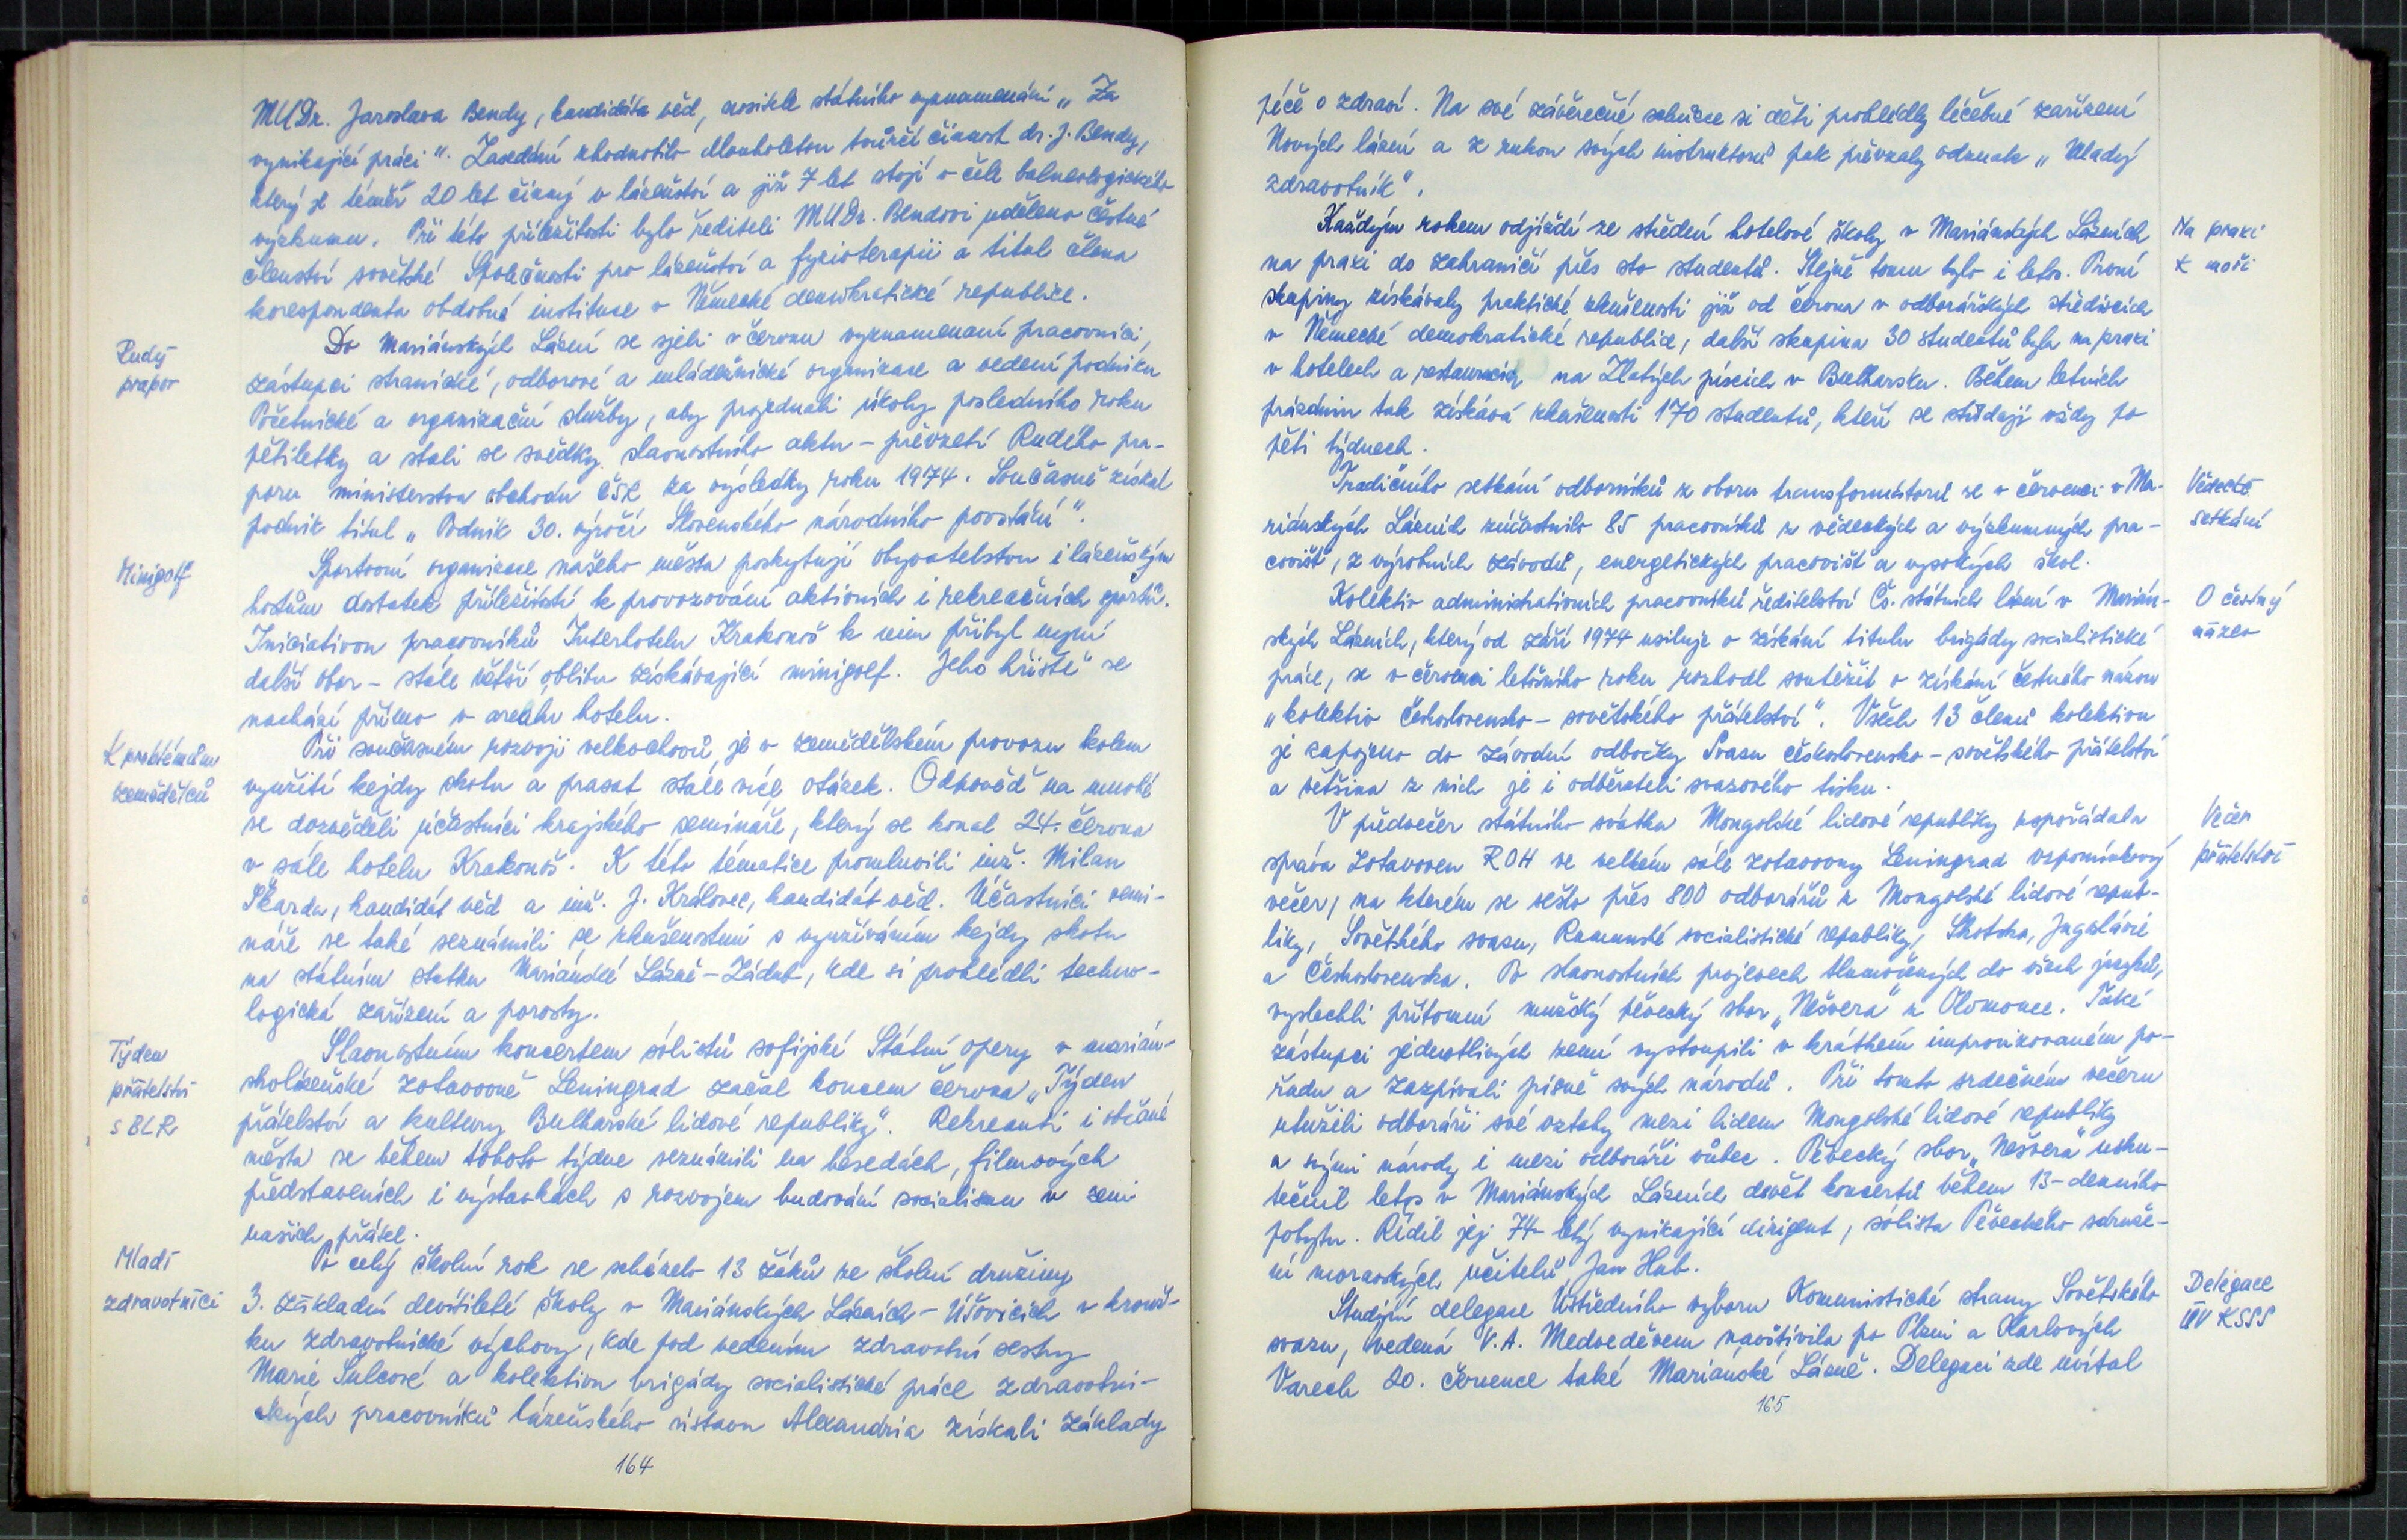 MUDr. Jaroslava Bendy, kandidáta věd, nositele státního vyznamenání „Za
vynikající práci". Zasedání zhodnotilo dlouholetou tvůrčí činnost dr. J. Bendy,
který je téměř 20 let činný v lázeňství a již 7 let stojí v čele balneologického
výzkumu. Při této příležitosti bylo řediteli MUDr. Bendovi uděleno čestné
členství sovětské Společnosti pro lázeňství a fyzioterapii a titul člena
korespondenta obdobné instituce v Německé demokratické republice.
Rudý
prapor
Do Mariánských Lázní se sjeli v červnu vyznamenaní pracovníci,
zástupci stranické, odborové a mládežnické organizace a vedení podniku
Početnické a organizační služby, aby projednali úkoly posledního roku
pětiletky a stali se svědky slavnostního aktu – převzetí Rudého pra-
poru ministerstva obchodu ČSR za výsledky roku 1974. Současně získal
podnik titul „Podnik 30. výročí Slovenského národního povstání".
Minigolf
Sportovní organizace našeho města poskytují obyvatelstvu i lázeňským
hostům dostatek příležitostí k provozování aktivních i rekreačních sportů.
Iniciativou pracovníků Interhotelu Krakonoš k nim přibyl nyní
další obor – stále větší oblibu získávající minigolf. Jeho hřiště se
nachází přímo v areálu hotelu.
K problémům
zemědělců
Při současném rozvoji velkochovů, je v zemědělském provozu kolem
využití kejdy skotu a prasat stále více otázek. Odpověď na mnohé
se dozvěděli účastníci krajského semináře, který se konal 24. června
v sále hotelu Krakonoš. K této tématice promluvili inž. Milan
Škarda, kandidát věd a inž. J. Královec, kandidát věd. Účastníci semi-
náře se také seznámili se zkušenostmi s využíváním kejdy skotu
na státním statku Mariánské Lázně – Zádub, kde si prohlédli techno-
logická zařízení a porosty.
Týden
přátelství
s BLR
Slavnostním koncertem sólistů sofijské Státní opery v marián-
skolázeňské zotavovně Leningrad začal koncem června „Týden
přátelství a kultury Bulharské lidové republiky". Rekreanti i občané
města se během tohoto týdne seznámili na besedách, filmových
představeních i výstavkách s rozvojem budování socialismu v zemi
našich přátel.
Mladí
zdravotníci
Po celý školní rok se scházelo 13 žáků ze školní družiny
3. základní devítileté školy v Mariánských Lázních – Úšovicích v krouž-
ku zdravotnické výchovy, kde pod vedením zdravotní sestry
Marie Šulcové a kolektivu brigády socialistické práce zdravotni-
ckých pracovníků lázeňského ústavu Alexandria získali základy
164
péče o zdraví. Na své závěrečné schůzce si děti prohlédly léčebné zařízení
Nových lázní a z rukou svých instruktorů pak převzaly odznak „Mladý
zdravotník".
Na praxi
k moři
Každým rokem odjíždí ze střední hotelové školy v Mariánských Lázních
na praxi do zahraničí přes sto studentů. Stejně tomu bylo i letos. První
skupiny získávaly praktické zkušenosti již od června v odborářských střediscích
v Německé demokratické republice, další skupina 30 studentů byla na praxi
v hotelech a restauracích na Zlatých pískách v Bulharsku. Během letních
prázdnin tak získává zkušenosti 170 studentů, kteří se střídají vždy po
pěti týdnech.
Vědecké
setkání
Tradičního setkání odborníků z oboru transformátorů se v červenci v Ma-
riánských Lázních zúčastnilo 85 pracovníků z vědeckých a výzkumných pra-
covišť, z výrobních závodů, energetických pracovišť a vysokých škol.
O čestný
název
Kolektiv administrativních pracovníků ředitelství Čs. státních lázní v Marián-
ských Lázních, který od září 1974 usiluje o získání titulu brigády socialistické
práce, se v červenci letošního roku rozhodl soutěžit o získání čestného názvu
„kolektiv československo – sovětského přátelství". Všech 13 členů kolektivu
je zapojeno do závodní odbočky Svazu československo – sovětského přátelství
a většina z nich je i odběrateli svazového tisku.
Večer
přátelství
V předvečer státního svátku Mongolské lidové republiky uspořádala
správa zotavoven ROH ve velkém sále zotavovny Leningrad vzpomínkový
večer, na kterém se sešlo přes 800 odborářů z Mongolské lidové repub-
liky, Sovětského svazu, Rumunské socialistické republiky, Skotska, Jugoslávie
a Československa. Po slavnostních projevech tlumočených do všech jazyků,
vyslechli přítomní mužský pěvecký sbor „Nešvera" z Olomouce. Také
zástupci jednotlivých zemí vystoupili v krátkém improvizovaném po-
řadu a zazpívali písně svých národů. Při tomto srdečném večeru
utužili odboráři své vztahy mezi lidem Mongolské lidové republiky
a svými národy i mezi odboráři vůbec. Pěvecký sbor „Nešvera" usku-
tečnil letos v Mariánských Lázních devět koncertů během 13-denního
pobytu. Řídil jej 74-letý vynikající dirigent, sólista Pěveckého sdruže-
ní moravských učitelů Jan Hub.
Delegace
ÚV KSSS
Studijní delegace Ústředního výboru Komunistické strany Sovětského
svazu, vedená V. A. Medveděvem navštívila po Plzni a Karlových
Varech 20. července také Mariánské Lázně. Delegaci zde uvítal
165